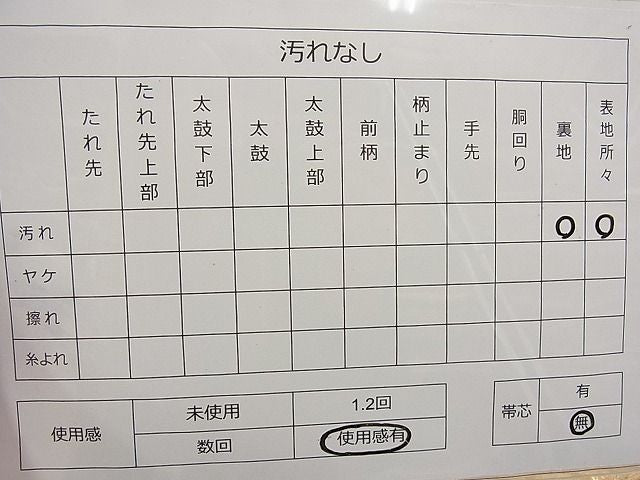 汚れなし
たれ先 たれ先上部 太鼓下部 太鼓 太鼓上部 前柄 柄止まり 手先 胴回り 裏地 表地所々
汚れ ○ ○
ヤケ
擦れ
糸よれ
使用感 未使用 1.2回
数回 使用感有
帯芯 有
無